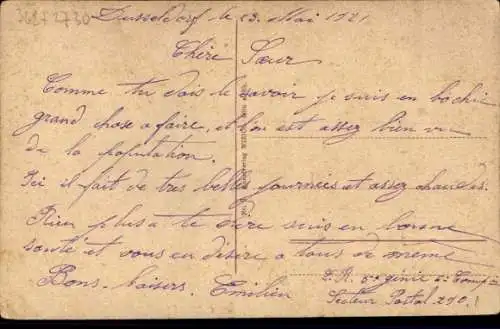 Dusseldorf le 23 Mai 1921
Chéré Sœur
Comme tu dois le savoir je suis en bochie
grand chose a faire, et l'on est assez bien vu
de la population.
Ici il fait de tres belles journées et assez chaudes.
Rien plus a te dire suis en bonne
santé et vous en désire a tous de meme
Bons baisers. Emilien
génie
Secteur Postal 290.